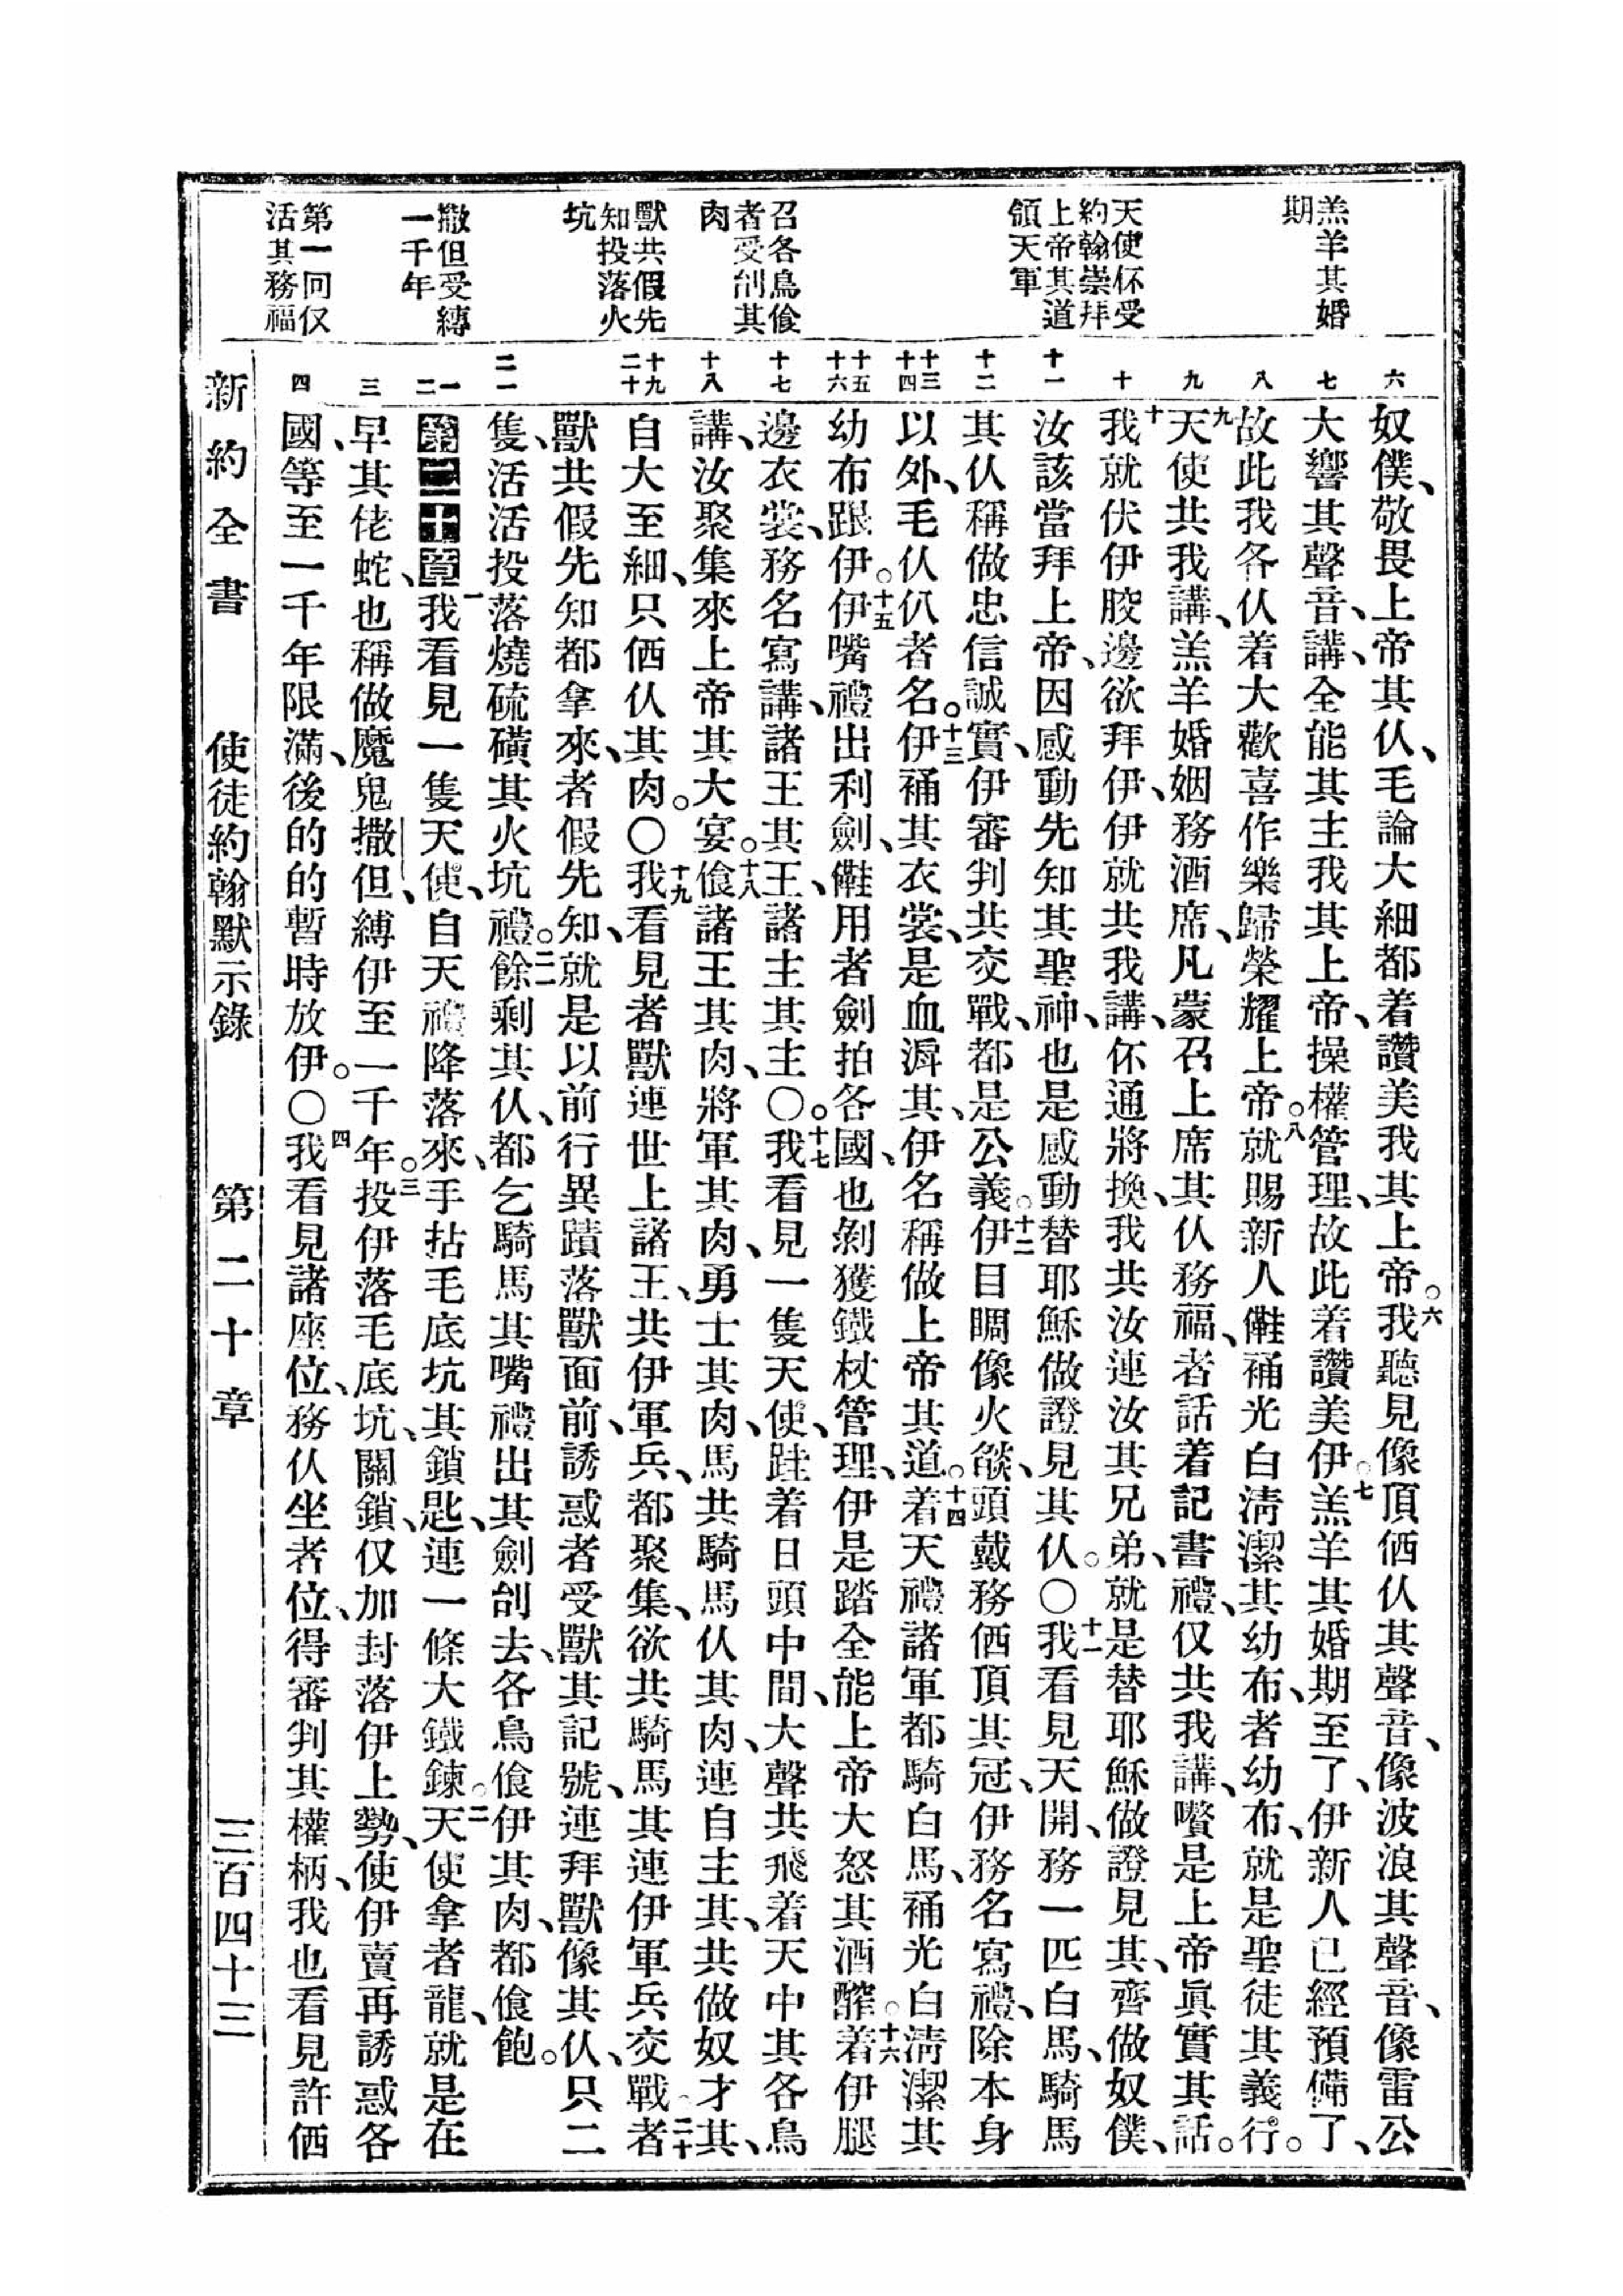 羔羊其婚
期
天使伓受
約翰崇拜
上帝其道
領天軍
召各鳥飡
者受刣其
肉
獸共假先
知投落火
坑
撒但受縛
一千年
第一回仅
活其務福
六
七
八
九
十
十一
十二
十三
十四
十五
十六
十七
十八
十九
二十
二一
一
二
三
四
奴僕、敬畏上帝其仈、毛論大細都着讚美我其上帝。六我聽見像頂㐰仈其聲音、像波浪其聲音、像雷公
大響其聲音、講、全能其主我其上帝、操權管理、故此着讚美伊。七羔羊其婚期至了、伊新人已經預備了、
故此我各仈着大歡喜作樂歸榮耀上帝。八就賜新人㒕䘄光白清潔其幼布、者幼布、就是聖徒其義行。
九天使共我講、羔羊婚姻務酒席、凡蒙召上席其仈務福、者話着記書禮、仅共我講、囋是上帝眞實其話。
十我就伏伊骹邊欲拜伊、伊就共我講、伓通將換、我共汝連汝其兄弟、就是替耶穌做證見其、齊做奴僕、
汝該當拜上帝、因感動先知其聖神、也是感動替耶穌做證見其仈。〇十一我看見天開、務一匹白馬、騎馬
其仈稱做忠信誠實、伊審判共交戰、都是公義。十二伊目睭像火燄、頭戴務㐰頂其冠、伊務名寫禮、除本身
以外、毛仈仈者名。十三伊䘄其衣裳、是血滒其、伊名稱做上帝其道。十四着天禮諸軍都騎白馬、䘄光白清潔其
幼布跟伊。十五伊嘴禮出利劍、㒕用者劍拍各國、也剝獲鐵杖管理、伊是踏全能上帝大怒其酒醡。十六着伊腿
邊衣裳、務名寫講、諸王其王、諸主其主。〇十七我看見一隻天使、跬着日頭中間、大聲共飛着天中其各鳥
講、汝聚集來上帝其大宴。十八飡諸王其肉、將軍其肉、勇士其肉、馬共騎馬仈其肉、連自主其、共做奴才其、
自大至細、只㐰仈其肉。〇十九我看見者獸連世上諸王、共伊軍兵、都聚集、欲共騎馬其連伊軍兵交戰。二十者
獸共假先知都拿來、者假先知、就是以前行異蹟落獸面前、誘惑者受獸其記號、連拜獸像其仈、只二
隻、活活投落燒硫磺其火坑禮。二一餘剩其仈、都乞騎馬其嘴禮出其劍刣去、各鳥飡伊其肉、都飡飽。
第二十章一我看見一隻天使、自天禮降落來、手拈毛底坑其鎖匙、連一條大鐵鍊。二天使拿者龍、就是在
早其佬蛇、也稱做魔鬼撒但、縛伊至一千年。三投伊落毛底坑、關鎖、仅加封落伊上勢、使伊賣再誘惑各
國、等至一千年限滿、後的的暫時放伊。〇四我看見諸座位、務仈坐者位、得審判其權柄、我也看見許㐰
新約全書 使徒約翰默示錄 第二十章 三百四十三